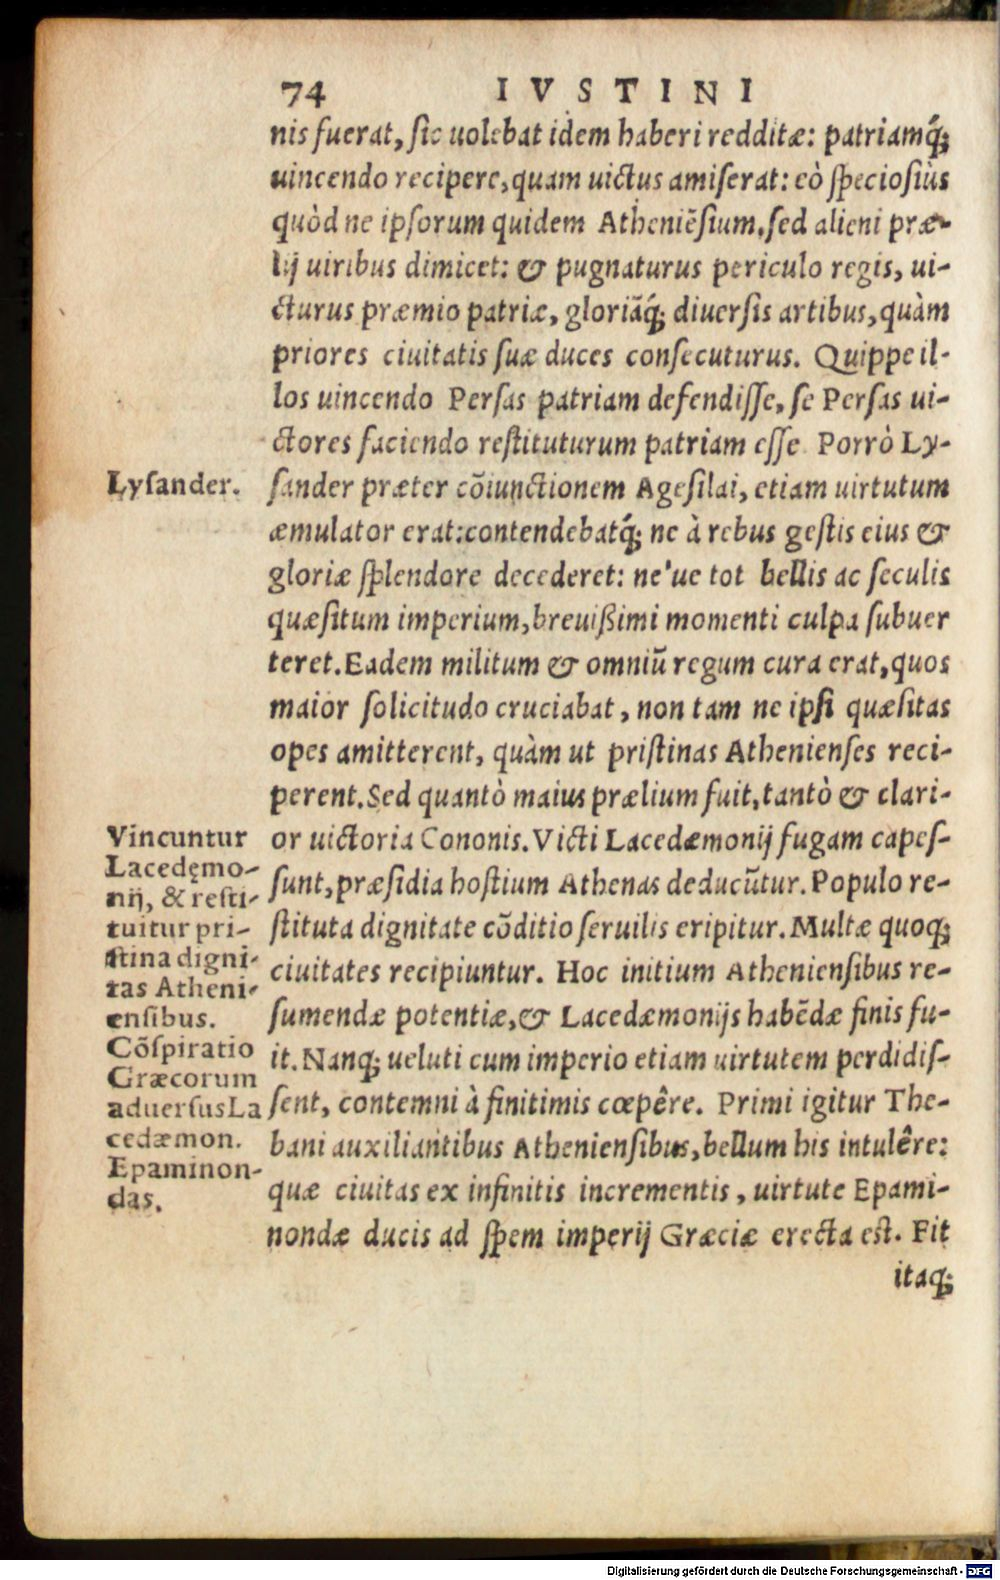 74 IVSTINI
nis fuerat, ſic uolebat idem haberi redditæ: patriamq́;
uincendo recipere, quam uictus amiſerat: eò ſpecioſiùs
quòd ne ipſorum quidem Atheniẽſium, ſed alieni præ-
lij uiribus dimicet: & pugnaturus periculo regis, ui-
cturus præmio patriæ, gloriãq́; diuerſis artibus, quàm
priores ciuitatis ſuæ duces conſecuturus. Quippe il-
los uincendo Perſas patriam defendiſſe, ſe Perſas ui-
ctores faciendo reſtituturum patriam eſſe. Porrò Ly-
Lyſander.
ſander præter cõiunctionem Ageſilai, etiam uirtutum
æmulator erat: contendebatq́; ne à rebus geſtis eius &
gloriæ ſplendore decederet: ne'ue tot bellis ac ſeculis
quæſitum imperium, breuißimi momenti culpa ſubuer
teret. Eadem militum & omniũ regum cura erat, quos
maior ſolicitudo cruciabat, non tam ne ipſi quæſitas
opes amitterent, quàm ut priſtinas Athenienſes reci-
perent. Sed quantò maius prælium fuit, tantò & clari-
or uictoria Cononis. Victi Lacedæmonij fugam capeſ-
ſunt, præſidia hoſtium Athenas deducũtur. Populo re-
ſtituta dignitate cõditio ſeruilis eripitur. Multæ quoq;
ciuitates recipiuntur. Hoc initium Athenienſibus re-
ſumendæ potentiæ, & Lacedæmonijs habẽdæ finis fu-
it. Nanq; ueluti cum imperio etiam uirtutem perdidiſ-
ſent, contemni à finitimis cœpêre. Primi igitur The-
bani auxiliantibus Athenienſibus, bellum his intulêre:
quæ ciuitas ex infinitis incrementis, uirtute Epami-
nondæ ducis ad ſpem imperij Græciæ erecta eſt. Fit
itaq;
Vincuntur
Lacedęmo-
nij, & reſti-
tuitur pri-
ſtina digni-
tas Atheni-
enſibus.
Cõſpiratio
Græcorum
aduerſus La
cedæmon.
Epaminon-
das.
Digitalisierung gefördert durch die Deutsche Forschungsgemeinschaft - DFG